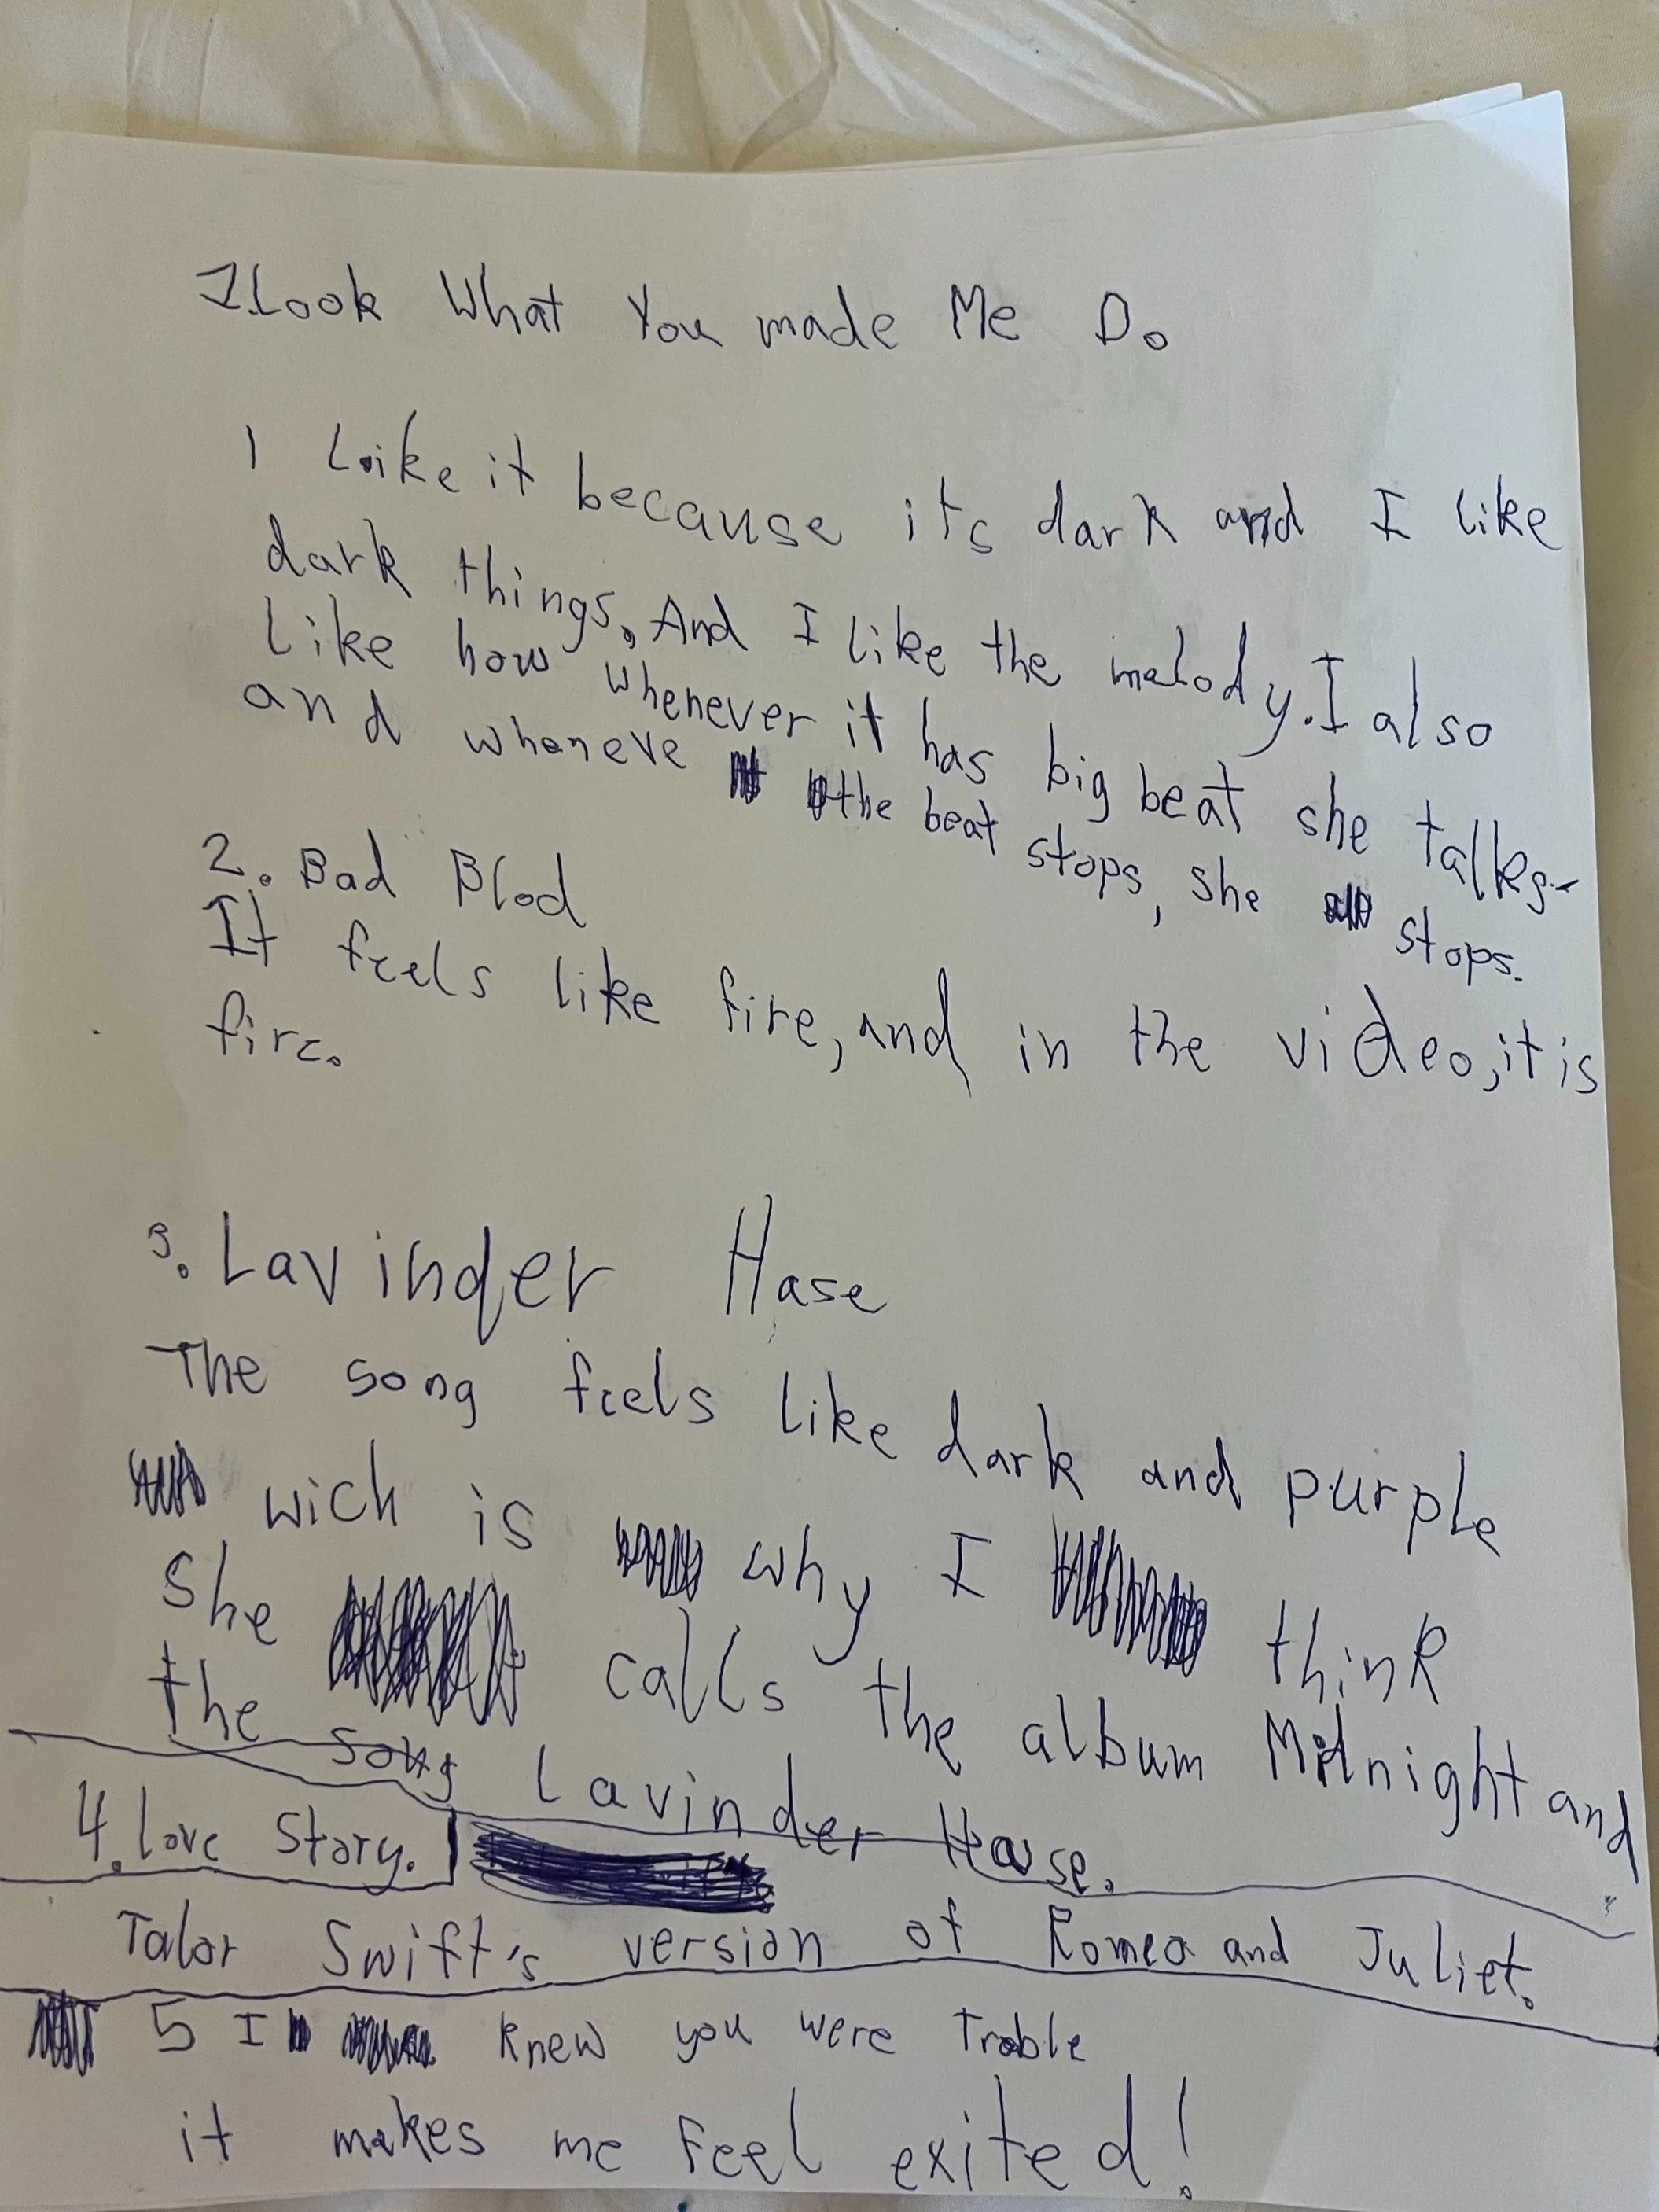 1.Look What You made Me Do
I Like it because its dark and I like
dark things. And I like the melody. I also
like how whenever it has big beat she talkes-
and wheneve the beat stops, she stops.
2. Bad Blod
It feels like fire, and in the video, it is
fire.
3. Lavinder Hase
The song feels like dark and purple
wich is why I think
she calls the album Midnight and
the song Lavinder Hase.
4. Love Story.
Talor Swift's version of Romeo and Juliet.
5 I knew you were Troble
it makes me feel exited!